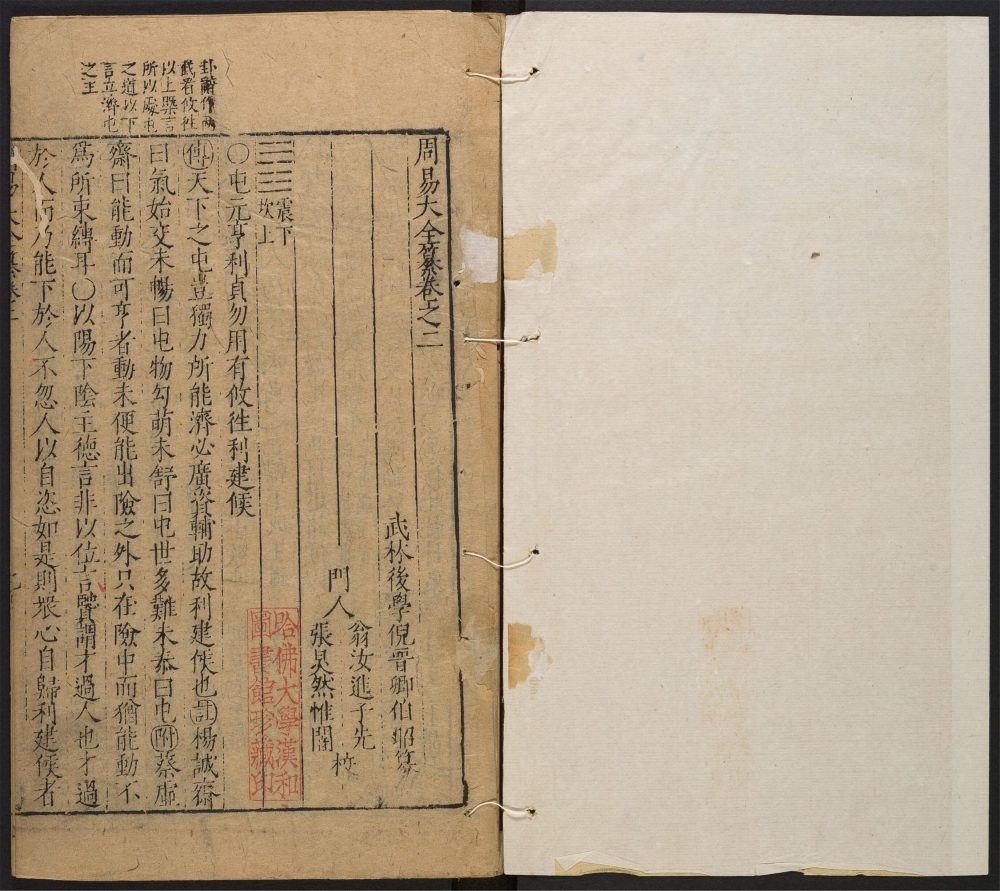 周易大全纂卷之二
武林後學倪晋卿伯昭纂
門人
翁汝進子先
張昊然惟闇
校
震下
坎上
〇屯元亨利貞勿用有攸徃利建侯
傳天下之屯豈獨力所能濟必廣資輔助故利建侯也註楊誠齋
曰氣始交未暢曰屯物勾萌未舒曰屯世多難未泰曰屯附蔡虛
齋曰能動而可亨者動未便能出險之外只在險中而猶能動不
為所束縛耳〇以陽下陰主德言非以位言賢謂才過人也才過
於人而乃能下於人不忽人以自恣如是則眾心自歸利建侯者
易大全纂卷二
卦辭作兩
截看攸徃
以上槩言
所以處屯
之道以下
言立濟屯
之主
哈佛大學漢和
圖書館珍藏印